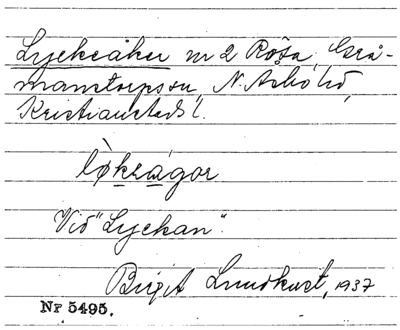 Lyckeåker nr 2 Rösa, Grå-
manstorps sn, N. Åsbo hd,
Kristianstads l.
lø̀kraågor
Vid "Lyckan".
Birgit Lundkvist, 1937
Nr 5495.